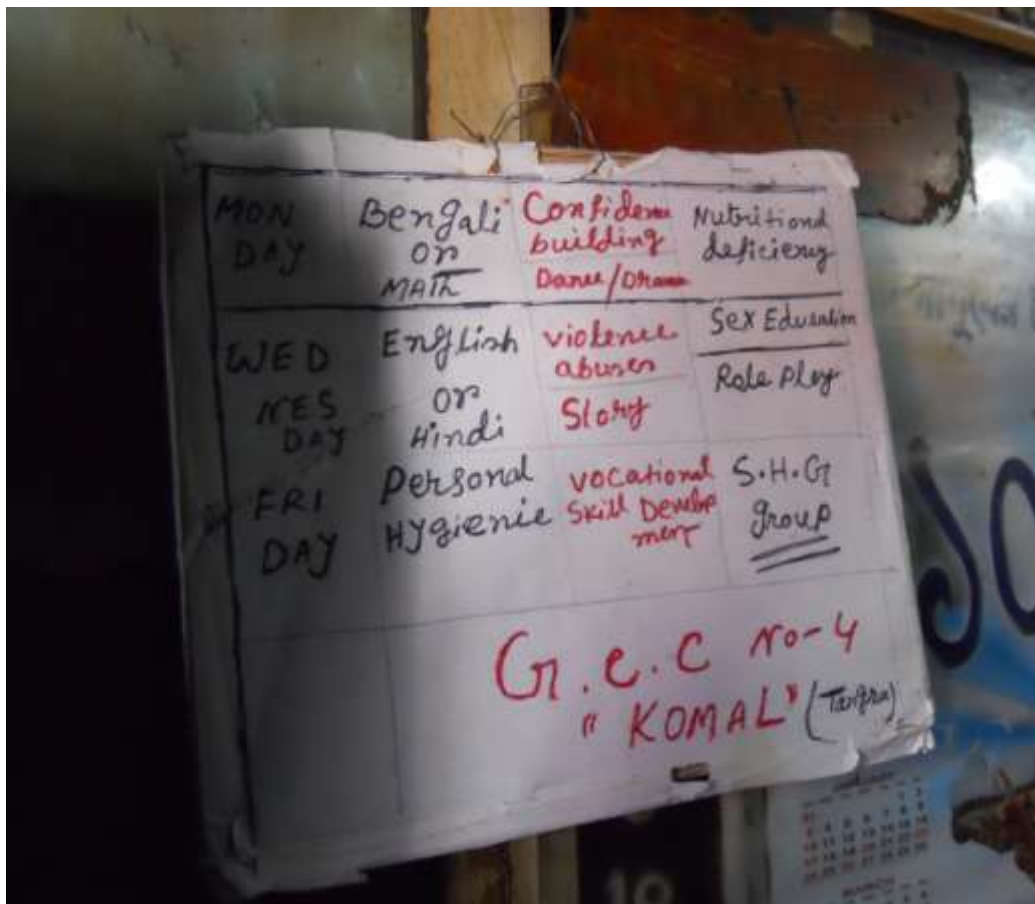 MON
DAY
Bengali
or
MATH
Confidence
building
Dance/Drama
Nutritional
deficiency
WED
NES
DAY
English
or
Hindi
violence
abuses
Story
Sex Education
Role Play
FRI
DAY
Personal
Hygienie
vocational
Skill Develop
ment
S.H.G
group
G.C.C NO-4
"KOMAL" (Tangra)
JO
10